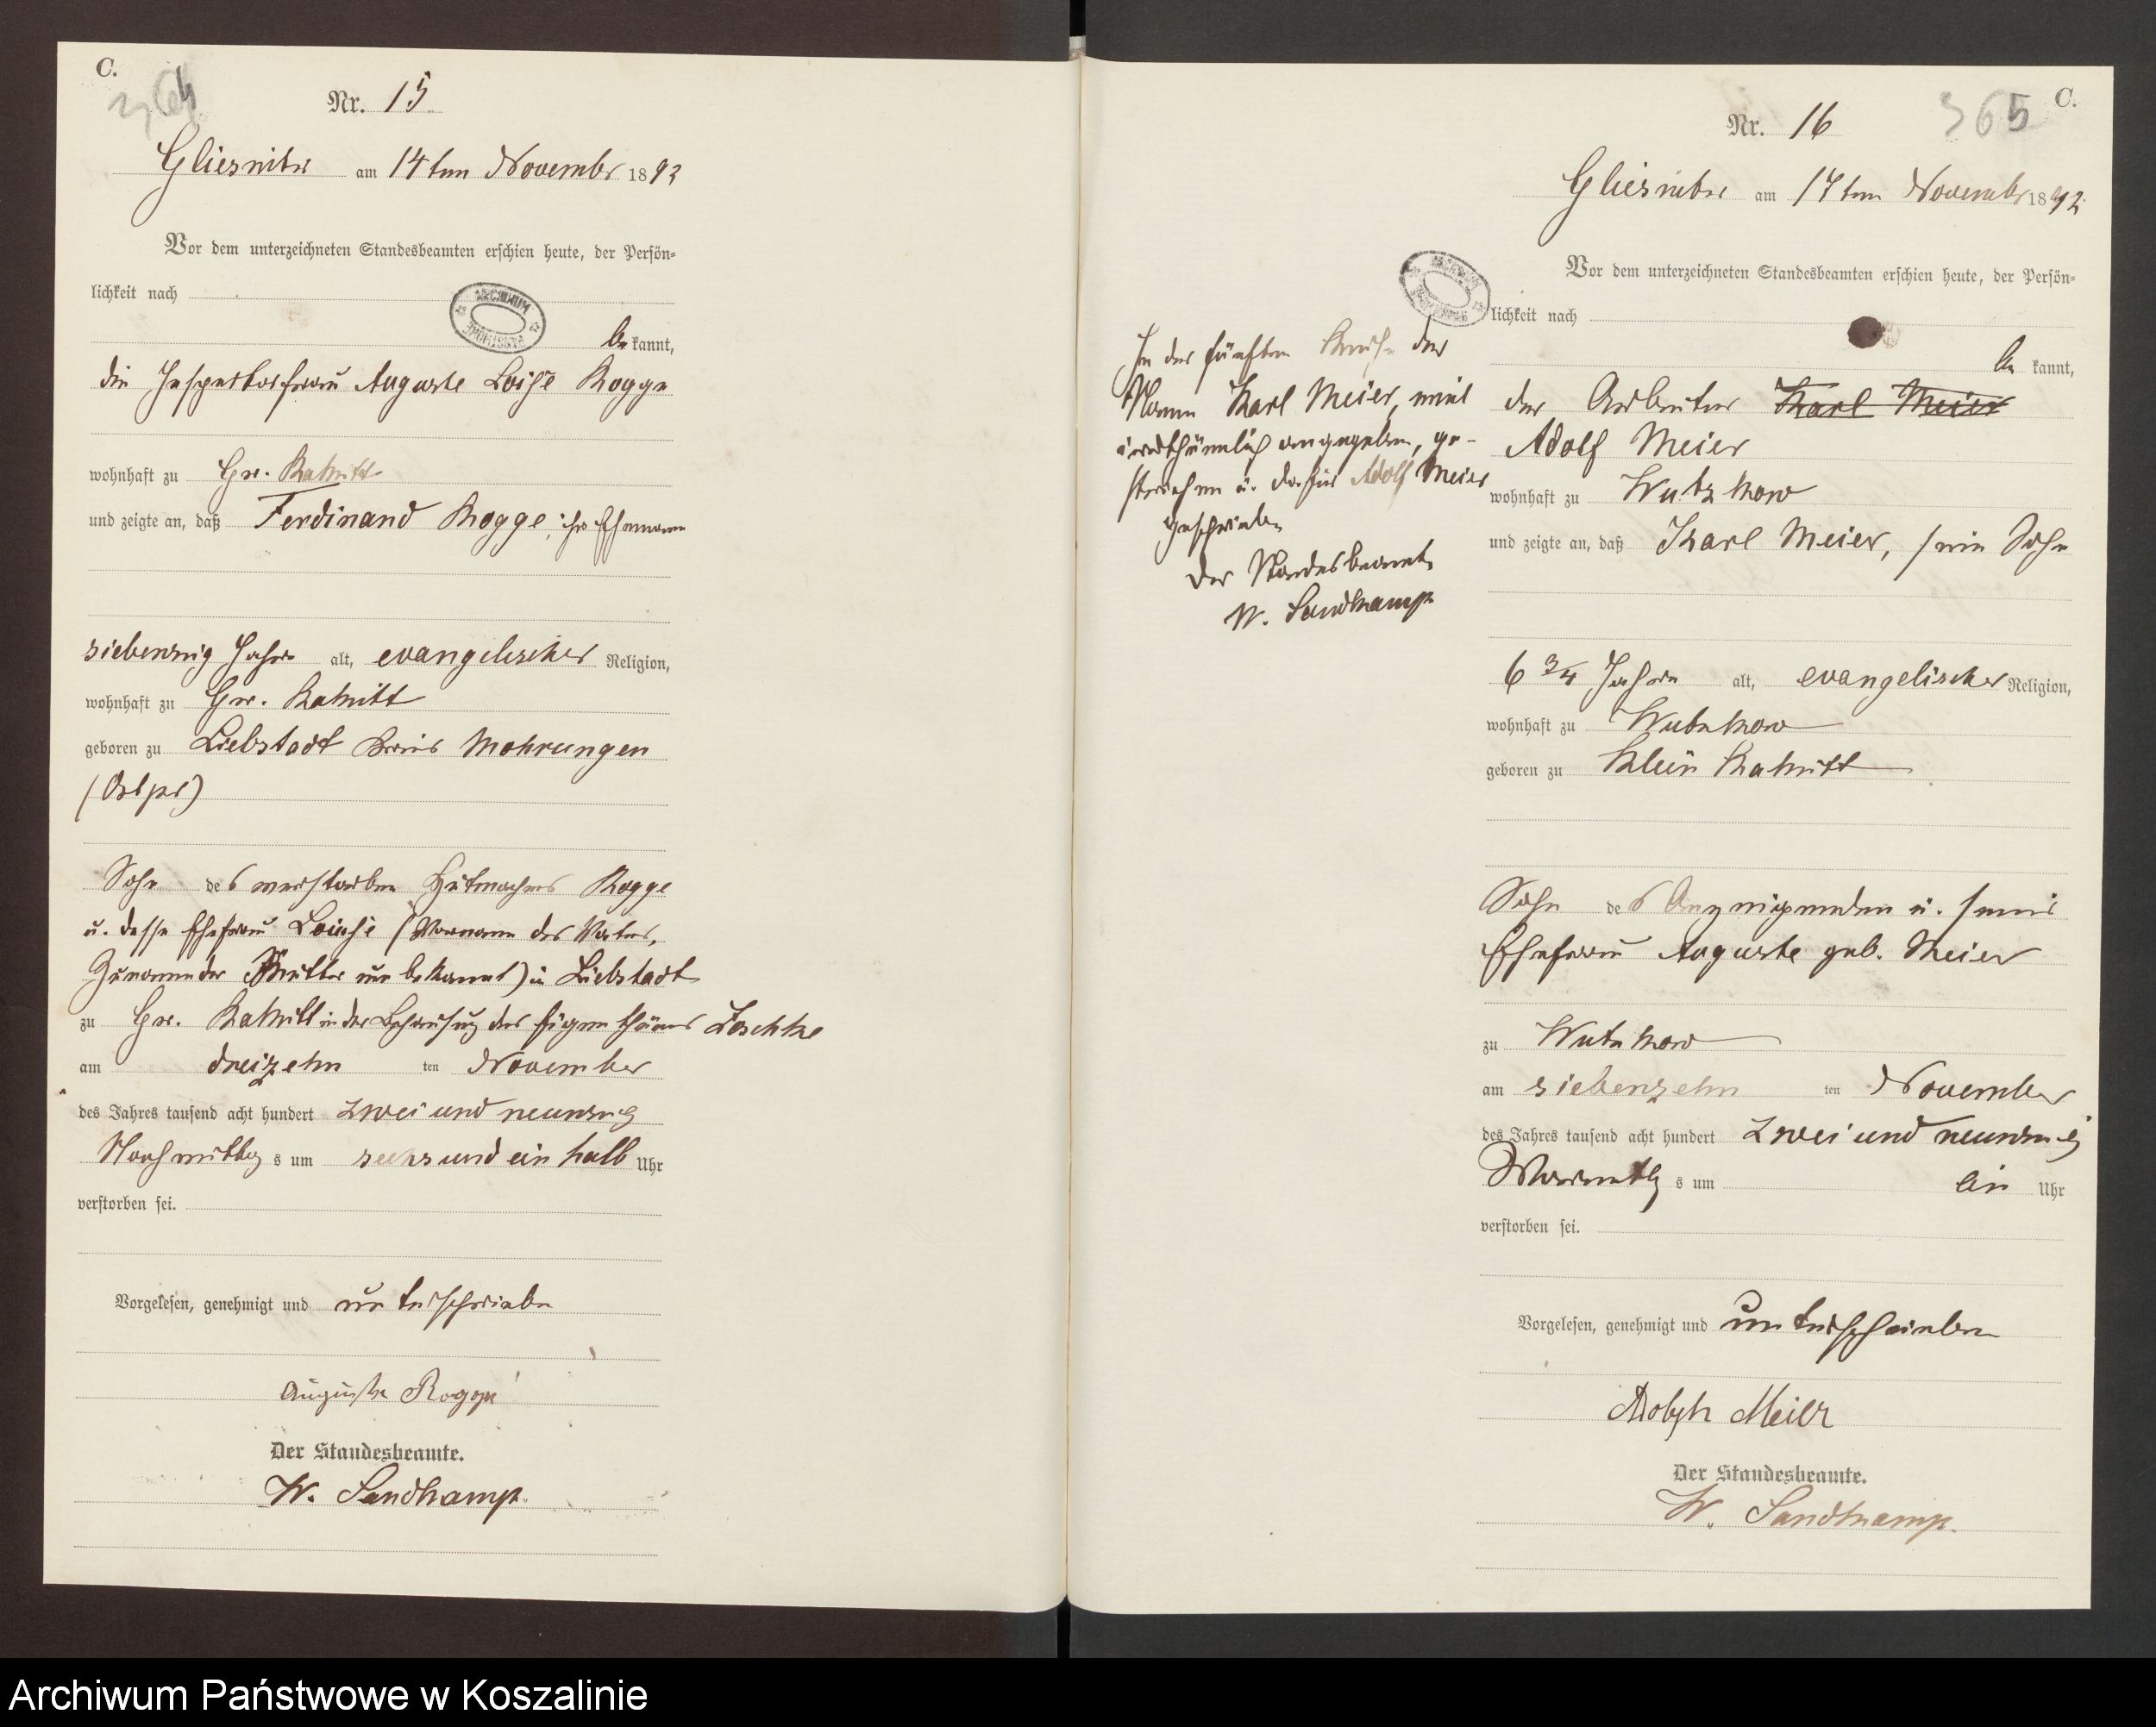 C.
364
Nr. 15
Gliesnitz am 14ten November 1892
Vor dem unterzeichneten Standesbeamten erschien heute, der Persön-
lichkeit nach
ARCHIWUM
be kannt,
die Inspektorfrau Auguste Loise Rogge
wohnhaft zu Gr. Rakitt
und zeigte an, daß Ferdinand Rogge, ihr Ehemann
siebenzig Jahre alt, evangelischer Religion,
wohnhaft zu Gr. Rakitt
geboren zu Liebstadt Kreis Mohrungen
(Ostpr)
Sohn des verstorben Hutmachers Rogge
u. desse Ehefrau Louise (Vorname des Vaters,
Zuname der Mutter un bekannt) in Liebstadt
zu Gr. Rakitt in der Behausung des Eigenthümers Zoschke
am dreizehn ten November
des Jahres tausend acht hundert zwei und neunzig
Nachmittag s um sechs und ein halb Uhr
verstorben sei.
Vorgelesen, genehmigt und unterschrieben
Auguste Rogge
Der Standesbeamte.
W. Sandkamp.
C.
365
Nr. 16
Gliesnitz am 17ten November 1892
Vor dem unterzeichneten Standesbeamten erschien heute, der Persön-
lichkeit nach
be kannt,
der Arbeiter Karl Meier
Adolf Meier
wohnhaft zu Wutzkow
und zeigte an, daß Karl Meier, sein Sohn
6 3/4 Jahre alt, evangelischer Religion,
wohnhaft zu Wutzkow
geboren zu Klein Rakitt
Sohn des Anzeigenden u. seiner
Ehefrau Auguste geb. Meier
zu Wutzkow
am siebenzehn ten November
des Jahres tausend acht hundert zwei und neunzig
Vormittag s um ein Uhr
verstorben sei.
Vorgelesen, genehmigt und unterschrieben
Adolph Meier
Der Standesbeamte.
W. Sandkamp.
In der fünften der
Name Karl Meier, weil
irrthümlich angegeben, ge-
strichen u. dafür Adolf Meier
geschrieben
Der Standesbeamte
W. Sandkamp
Archiwum Państwowe w Koszalinie